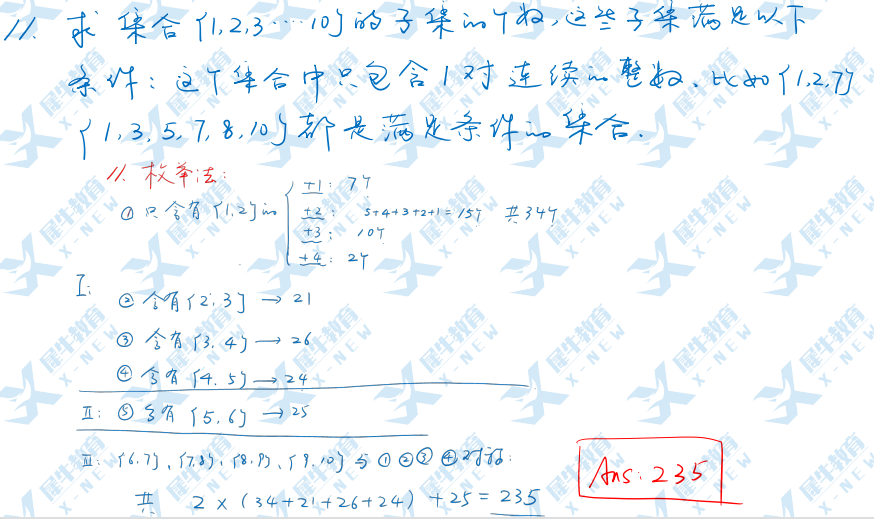 11. 求集合{1,2,3…10}的子集的个数,这些子集满足以下
条件:这个集合中只包含1对连续的整数.比如{1,2,7}
{1,3,5,7,8,10}都是满足条件的集合.
11. 枚举法:
① 只含有{1,2}的 { +1: 7个
+2: 5+4+3+2+1=15个 共34个
+3: 10个
+4: 2个
I:
② 含有{2,3} → 21
③ 含有{3,4} → 26
④ 含有{4,5} → 24
II: ⑤ 含有{5,6} → 25
III: {6,7}、{7,8}、{8,9}、{9,10}与①②③④对称:
共 2×(34+21+26+24)+25=235
Ans: 235
犀牛教育
X-NEW